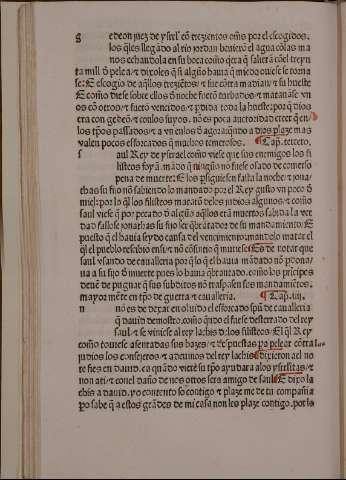 g edeon juez de ysrl' cõ trezientos oms por el escogidos.
los q̃les llegado al rio jordan beuierõ el agua cõ las ma
nos echandola en su boca comõ q̃era q̃ saliera cõ el treyn
ta mill õ pelea. ⁊ dixoles q̃ si algũo hauia q̃ miedo ouiese se torna
se: E escogio de aq̃llos trezietos/ ⁊ fue cõtra madian/ ⁊ su hueste
E comõ diese sobre ellos õ noche fuerõ turbados/ ⁊ matauãse vn
os cõ otros/ ⁊ fuerõ vencidos/ ⁊ p̃dida toda la hueste: por q̃ dios
era con gedeõ/ ⁊ con los suyos. nõ es poca auctoridad creer q̃ en
los tp̃os passados/ ⁊ a vn en los õ agora q̃ndo a dios plaze mas
valen pocos esforçados q̃ muchos temerosos. ¶ Cap. tercero.
s aul Rey de ysrael comõ viese que sus enemigos los fi
listeos foyã. mãdo q̃ ninguõ no fuese osado de comer so
pena de muerte: E los p̃siguiesen fasta la noche/ ⁊ jona/
thas su fijo nõ sabiendo lo mandado por el Rey gusto vn poco õ
miel: por lo q̃l los filisteos matarõ de los judios algunos/ ⁊ comõ
saul viese q̃ por pecado õ algũo aq̃llos erã muertos sabida la ver
dad fallose jonathas su fijo ser q̃brãtador de su mandamiento: E
puesto q̃ el hauia seydo causa del vencimiento. mandolo matar el
q̃l el pueblo escubio ensi/ ⁊ nõ cõsintio q̃ muriese: Es de notar que
saul vsando de cauallería por q̃ lo que el hauia mãdado nõ p̃dona/
ua a su fijo õ muerte pues lo hauia q̃brantado. comõ los prĩcipes
deuẽ de pugnar q̃ sus subditos nõ traspasen sus mandamiẽtos.
mayor mẽte en tp̃o de guerra ⁊ cauallería. ¶ Cap. iiij.
n nõ es de dexar en oluido el esforçado spũ de cauallería
q̃ dauid demostro. comõ q̃ndo el fuese desterrado del rey
saul/ ⁊ se viniese al rey lachis õ los filisteos: El q̃l Rey
comõ touiese asentadas sus hazes/ ⁊ dispuestas pa pelear cõtra los
judios los consejeros ⁊ adeuinos del rey lachis dixieron ael no
te fies en dauid. ca q̃ndo viere su tp̃o ayudara a los ysrlitas/ ⁊
non a ti/ ⁊ con el daño de nos otros sera amigo de saul. E dixo la
chis a dauid. yo contento so contigo ⁊ plaze me de tu compañia
po sabe q̃ a estos grãdes de mi casa non les plaze contigo. por lo